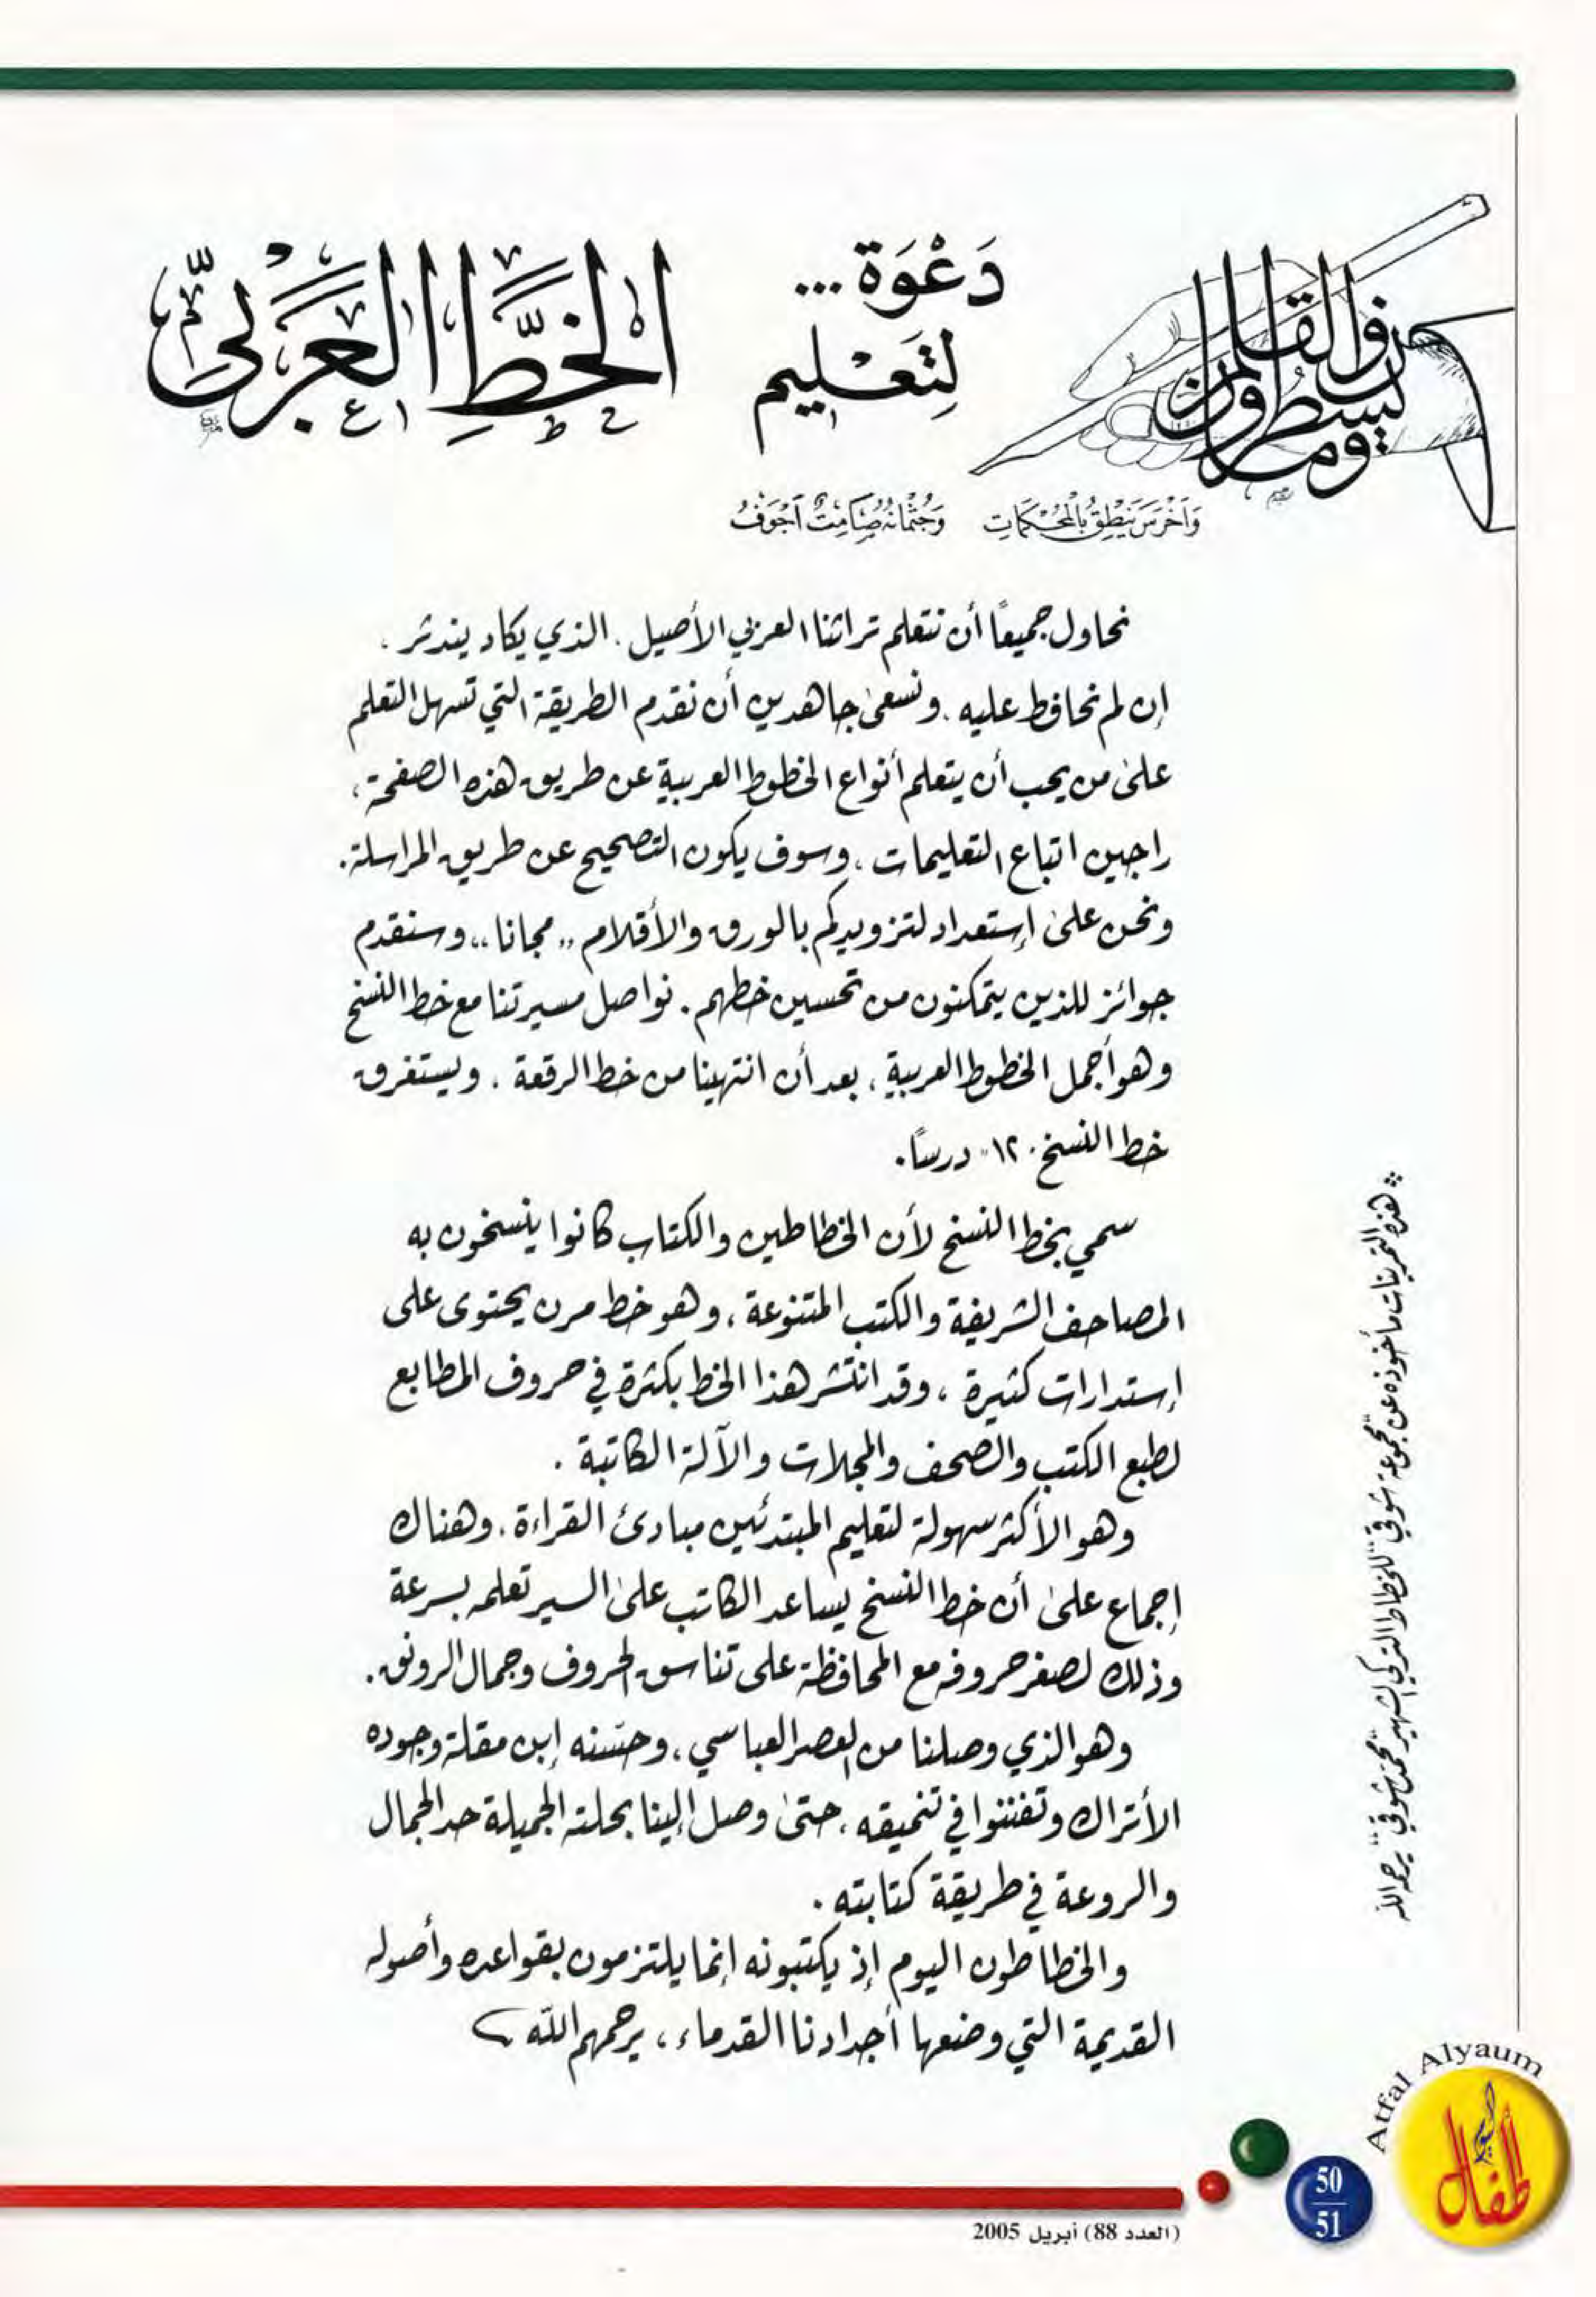 دَعْوَة...
لِتَعْليم
الخَطِّ العَرَبيّ
ن والقلم وما يسطرون
وَأَخْرَسَ يَنْطِقُ بِالْمُحْكَمَاتِ وَجُثْمَانُهُ صَامِتٌ أَجْوَفُ
نحاول جميعاً أن نتعلم تراثنا العربي الأصيل. الذي يكاد يندثر.
إن لم نحافظ عليه. ونسعى جاهدين أن نقدم الطريقة التي تسهل التعلم
على من يحب أن يتعلم أنواع الخطوط العربية عن طريق هذه الصفحة،
راجين اتباع التعليمات، وسوف يكون التصحيح عن طريق المراسلة.
ونحن على إستعداد لتزويدكم بالورق والأقلام "مجانا"، وسنقدم
جوائز للذين يتمكنون من تحسين خطهم. نواصل مسيرتنا مع خط النسخ
وهو أجمل الخطوط العربية، بعد أن انتهينا من خط الرقعة. ويستغرق
خط النسخ "١٢" درساً.
سمي بخط النسخ لأن الخطاطين والكتاب كانوا ينسخون به
المصاحف الشريفة والكتب المتنوعة، وهو خط مرن يحتوى على
إستدارات كثيرة، وقد انتشر هذا الخط بكثرة في حروف المطابع
لطبع الكتب والصحف والمجلات والآلة الكاتبة.
وهو الأكثر سهولة لتعليم المبتدئين مبادئ القراءة. وهناك
إجماع على أن خط النسخ يساعد الكاتب على السير تعلمه بسرعة
وذلك لصغر حروفه مع المحافظة على تناسق الحروف وجمال الرونق.
وهو الذي وصلنا من العصر العباسي، وحسّنه إبن مقلة وجوده
الأتراك وتفننوا في تنميقه، حتى وصل إلينا بحلته الجميلة حد الجمال
والروعة في طريقة كتابته.
والخطاطون اليوم إذ يكتبونه إنما يلتزمون بقواعده وأصوله
القديمة التي وضعها أجدادنا القدماء، يرحمهم الله
* هذه التمرينات مأخوذة عن "مجموعة شوقي" للخطاط التركي الشهير "محمد شوقي" يرحمه الله
Atfal Alyaum
أطفال اليوم
50
51
(العدد 88) أبريل 2005